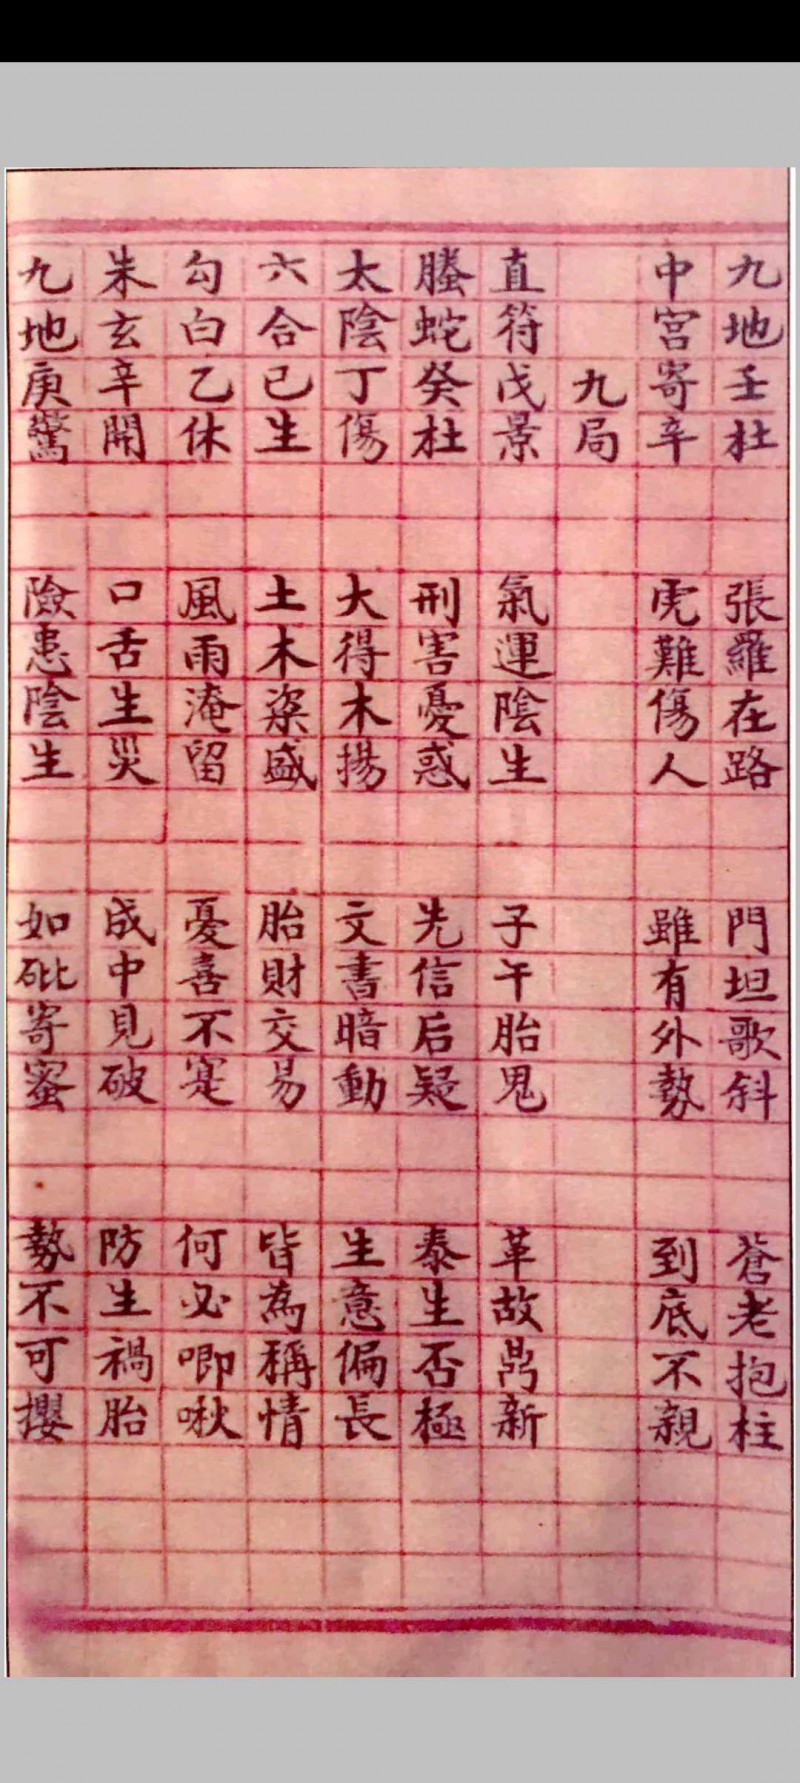 九地壬杜 張羅在路 門坦歌斜 蒼老抱柱
中宮寄辛 虎難傷人 雖有外勢 到底不親
九局
直符戊景 氣運陰生 子午胎鬼 革故鼎新
螣蛇癸杜 刑害憂惑 先信后疑 泰生否極
太陰丁傷 大得木揚 文書暗動 生意偏長
六合己生 土木粢盛 胎財交易 皆為稱情
勾白乙休 風雨淹留 憂喜不寔 何必唧啾
朱玄辛開 口舌生災 成中見破 防生禍胎
九地庚驚 險患陰生 如砒寄蜜 勢不可攖